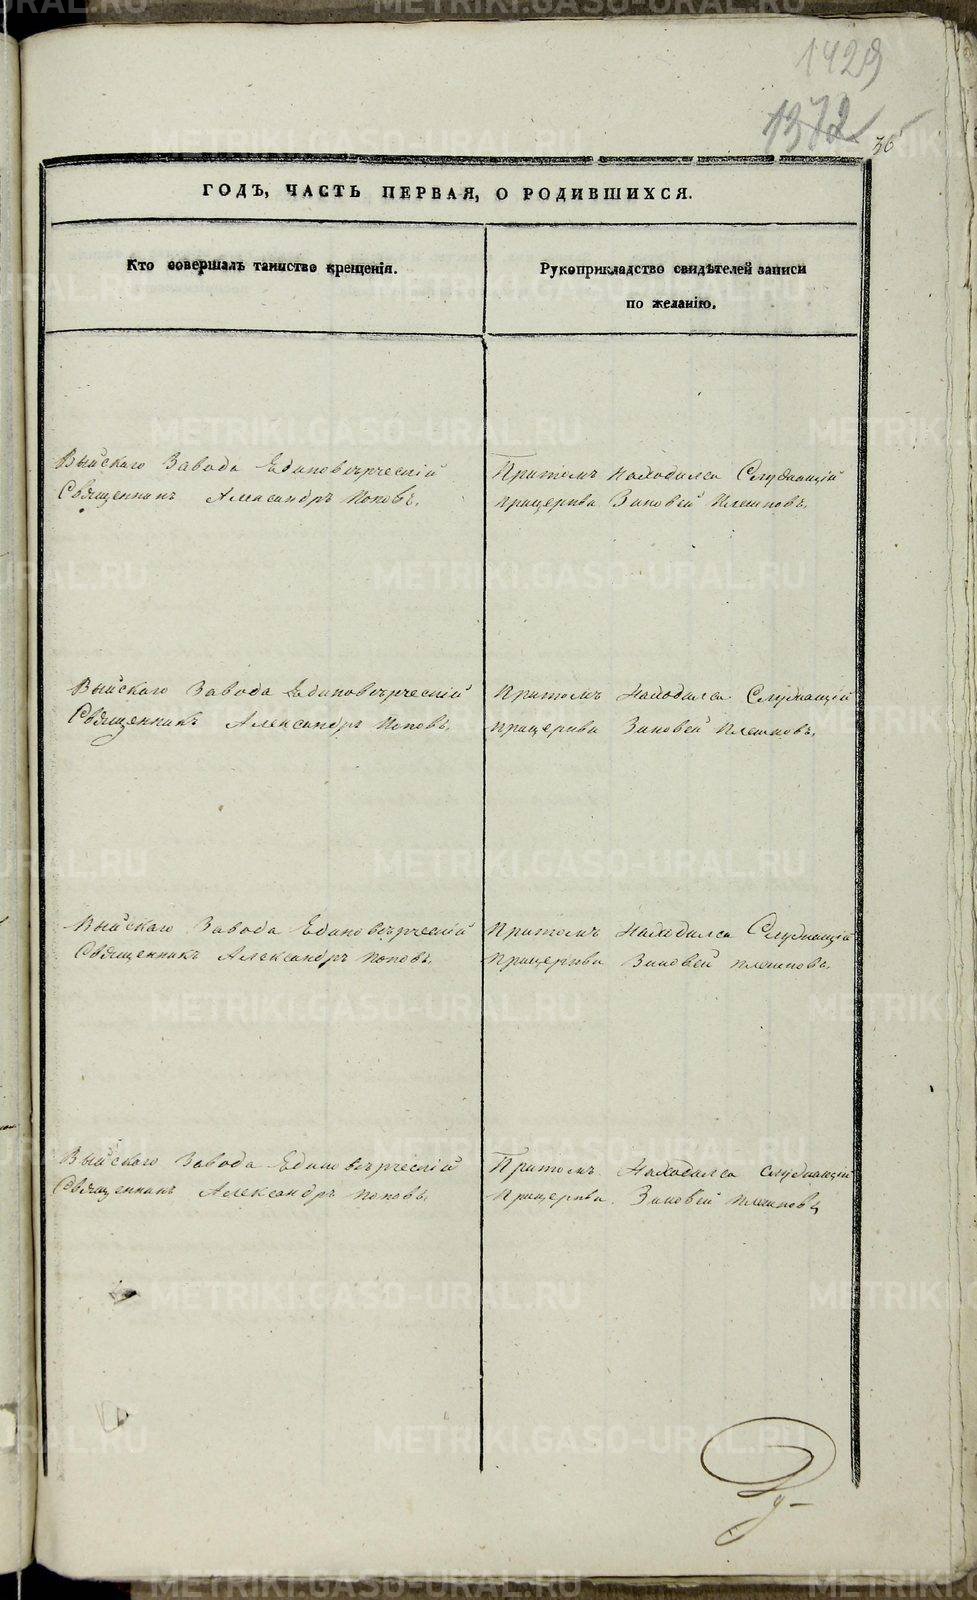 1429
1372
36
ГОДЪ, ЧАСТЬ ПЕРВАЯ, О РОДИВШИХСЯ.
Кто совершалъ таинство крещенія.
Рукоприкладство свидѣтелей записи
по желанію.
Выйскаго Завода Единовѣрческій
Священникъ Александръ Поповъ.
Притомъ находился Служащій
прицерква Зиновей Плешковъ.
Выйскаго Завода Единовѣрческій
Священникъ Александръ Поповъ.
Притомъ находился Служащій
прицерква Зиновей Плешковъ.
Выйскаго Завода Единовѣрческій
Священникъ Александръ Поповъ.
Притомъ находился Служащій
прицерква Зиновей Плешковъ.
Выйскаго Завода Единовѣрческій
Священникъ Александръ Поповъ.
Притомъ находился служащій
прицерква Зиновей Плешковъ
METRIKI.GASO-URAL.RU